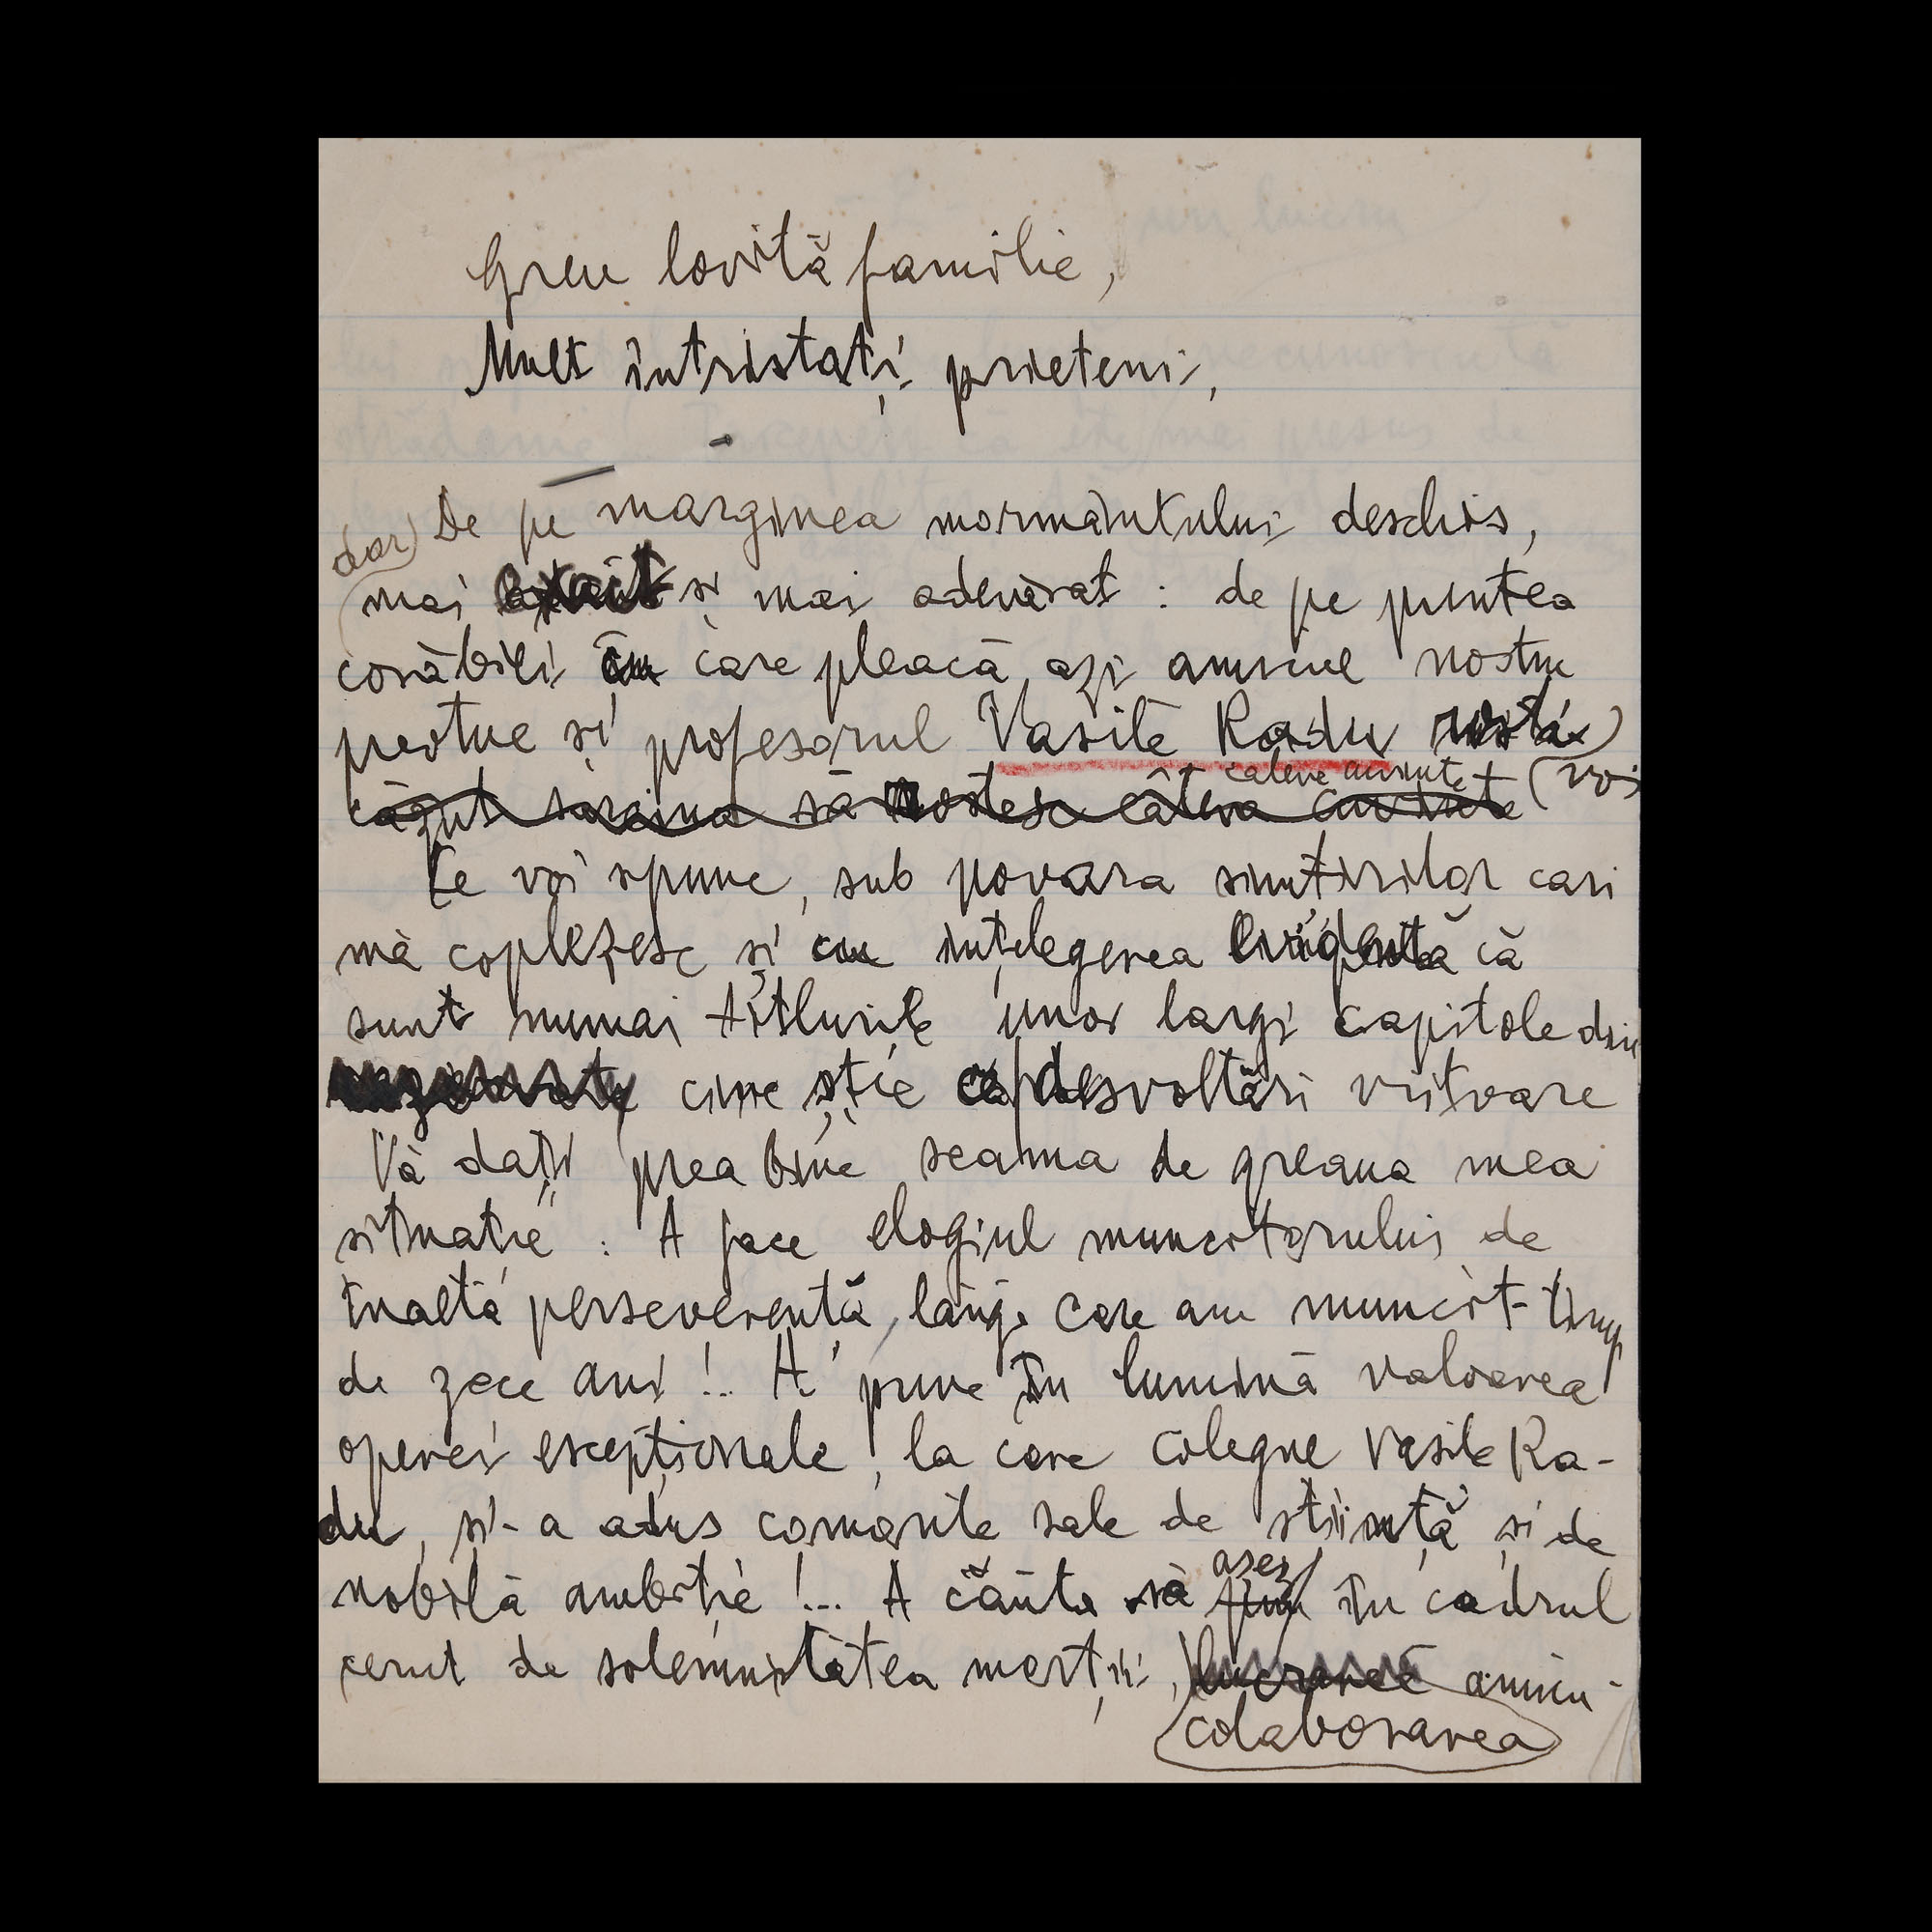 Greu lovită familie,
Mult întristați prieteni,
De pe marginea mormântului deschis,
dar
mai și mai adevărat : de pe puntea
corăbiei în care pleacă azi amicul nostru
preotul și profesorul Vasile Radu
câteva cuvinte (voi
căzut sarcina să rostesc câteva cuvinte
Ce voi spune, sub povara simțirilor cari
mă copleșesc și cu înțelegerea evidentă că
sunt numai titlurile unor largi capitole din
cine știe ce desvoltări viitoare
Vă dați prea bine seama de greaua mea
situație : A face elogiul muncitorului de
înaltă perseverență, lângă care am muncit timp
de zece ani !.. A pune în lumină valoarea
operei excepționale, la care colegul Vasile Ra-
du, și-a adus comorile sale de știință și de
nobilă ambiție !... A căuta să în cadrul
așez
cerut de solemnitatea morții, lucrarea amicu-
colaborarea